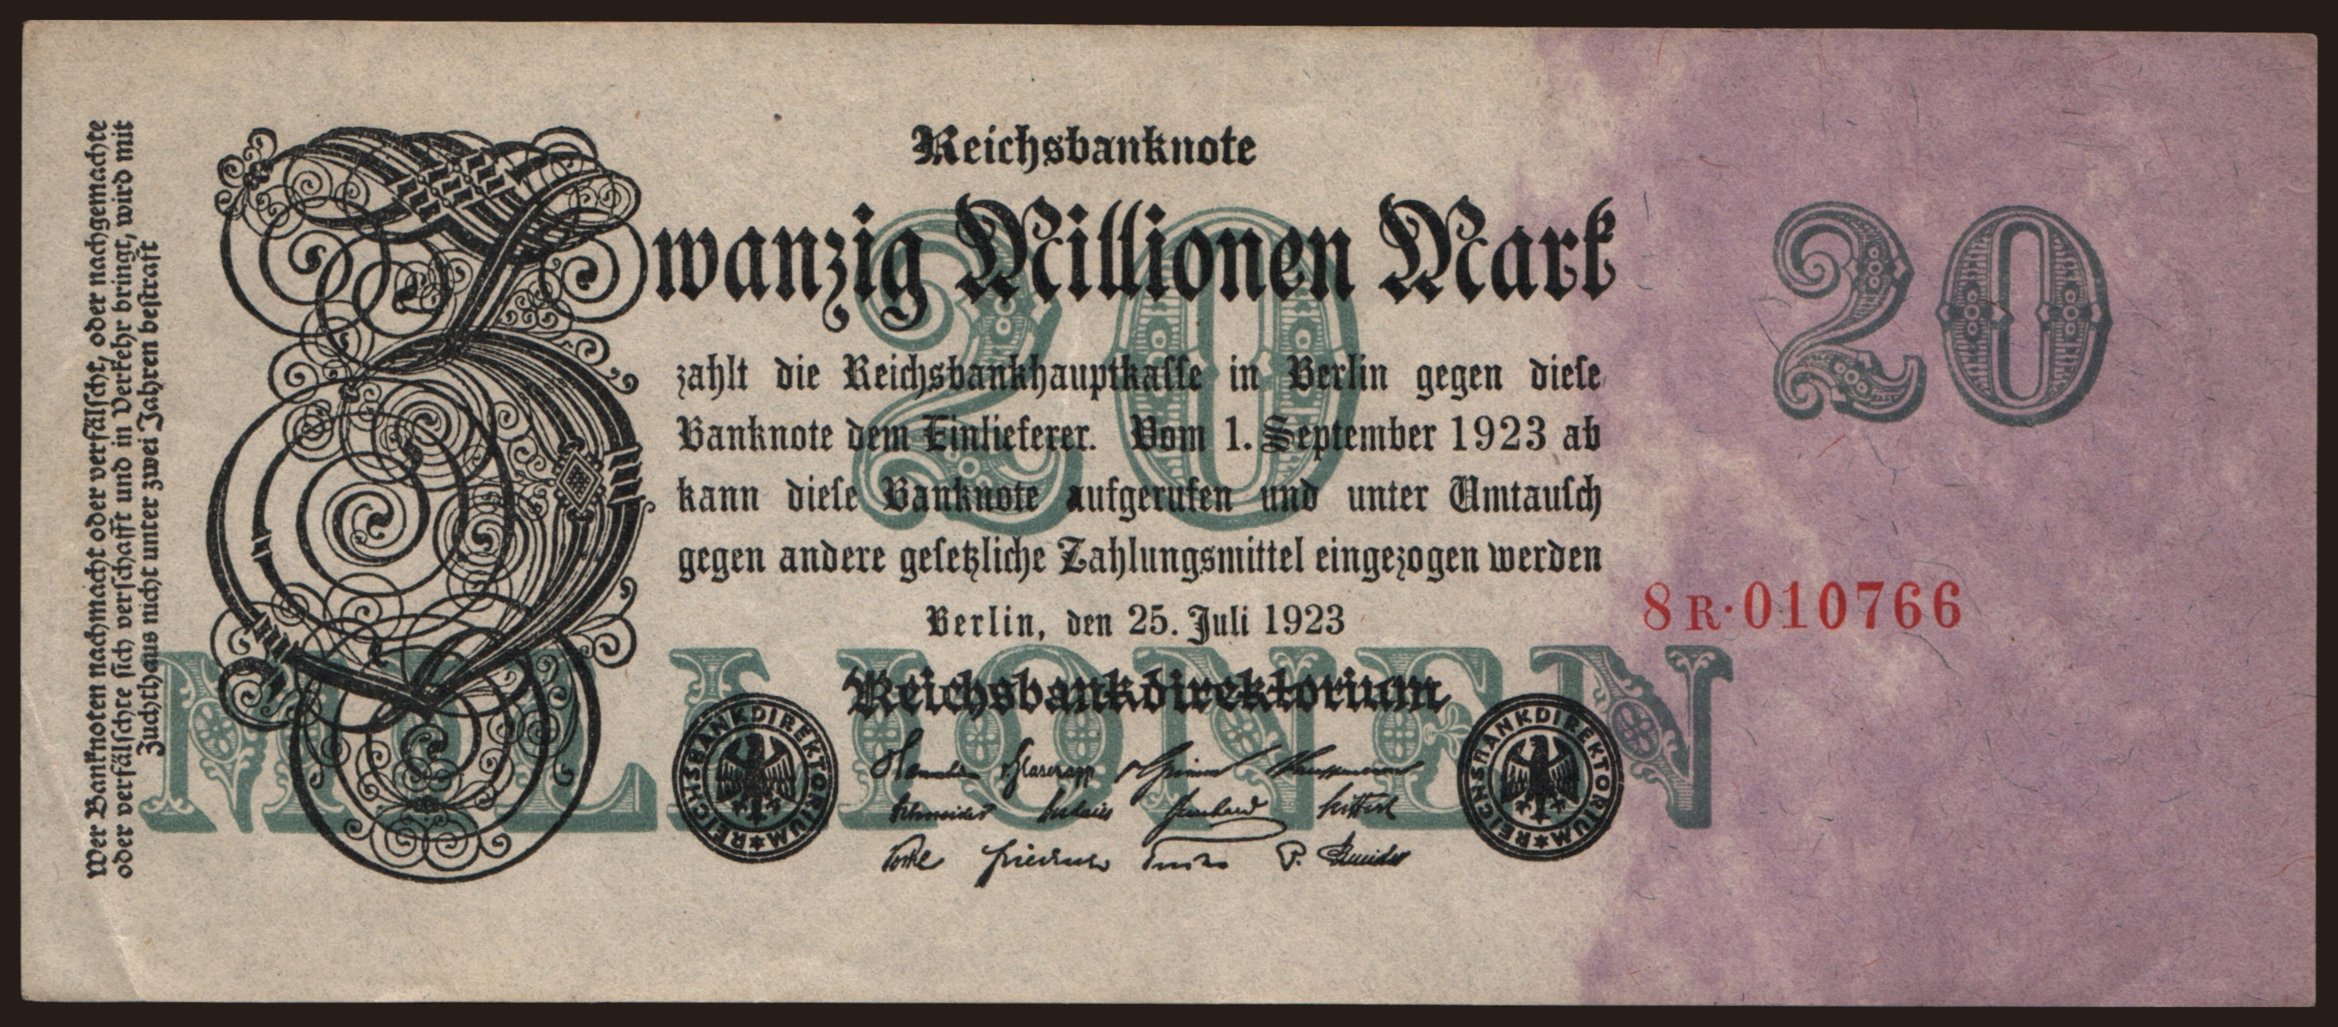 Reichsbanknote
Zwanzig Millionen Mark
zahlt die Reichsbankhauptkasse in Berlin gegen diese
Banknote dem Einlieferer. Vom 1. September 1923 ab
kann diese Banknote aufgerufen und unter Umtausch
gegen andere gesetzliche Zahlungsmittel eingezogen werden
Berlin, den 25. Juli 1923
Reichsbankdirektorium
REICHSBANKDIREKTORIUM
REICHSBANKDIREKTORIUM
v. Glasenapp v. Grimm Kauffmann
Schneider Budczies Bernhard Seiffert
Vocke Friedrich Fuchs P. Schneider
20
MILLIONEN
20
8R·010766
Wer Banknoten nachmacht oder verfälscht, oder nachgemachte
oder verfälschte sich verschafft und in Verkehr bringt, wird mit
Zuchthaus nicht unter zwei Jahren bestraft